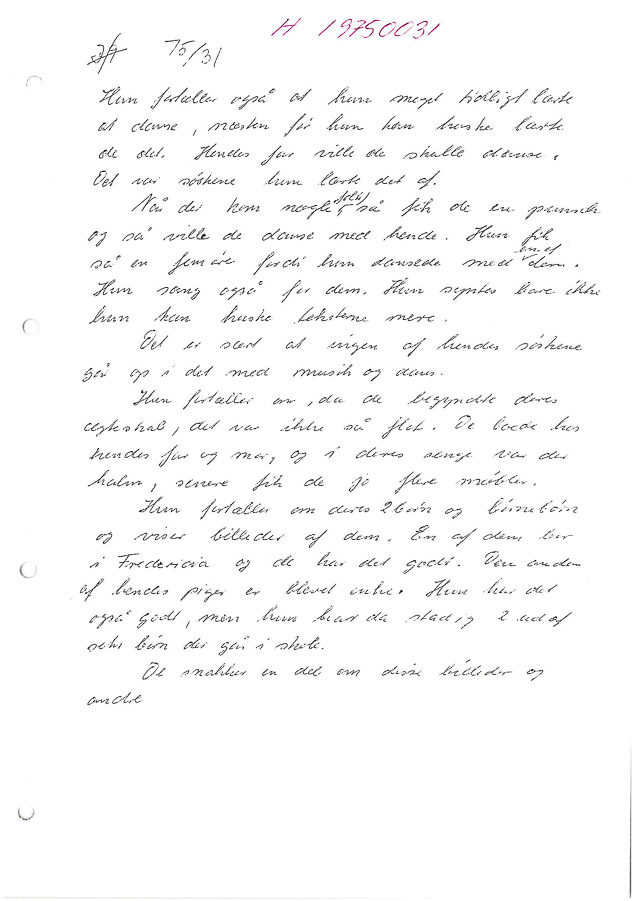 H 19750031
75/31
Hun fortæller også at hun meget tidligt lærte
at danse, næsten før hun kan huske lærte
de det. Hendes far ville de skulle danse.
Det var søskene hun lærte det af.
Når der kom nogle folk, så fik de en punsch
og så ville de danse med hende. Hun fik
så en femøre fordi hun dansede med en af dem.
Hun sang også for dem. Hun syntes bare ikke
hun kan huske teksterne mere.
Det er sært at ingen af hendes søskene
går op i det med musik og dans.
Hun fortæller om, da de begyndte deres
ægteskab, det var ikke så flot. De boede hos
hendes far og mor, og i deres senge var der
halm, senere fik de jo flere møbler.
Hun fortæller om deres 2 børn og børnebørn
og viser billeder af dem. En af dem bor
i Fredericia og de har det godt. Den anden
af hendes piger er blevet enke. Hun har det
også godt, men hun har da stadig 2 ud af
seks børn der går i skole.
De snakker en del om disse billeder og
andre